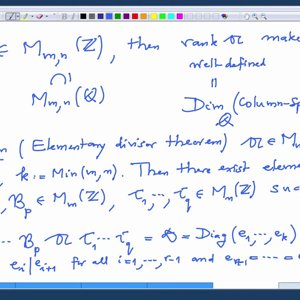 ∈ M_{m,n}(ℤ), then rank 𝔄 make
∩ well-defined
M_{m,n}(ℚ) =
Dim_ℚ (Column-Sp
(Elementary divisor theorem) 𝔄 ∈ M
, k := Min(m,n). Then there exist elemen
, B_p ∈ M_m(ℤ), τ_1, ..., τ_q ∈ M_m(ℤ) suc
... B_p 𝔄 τ_1 ... τ_q = 𝔇 = Diag(e_1, ..., e_k)
e_i | e_{i+1} for all i=1, ..., r-1 and e_{r+1} = ... =